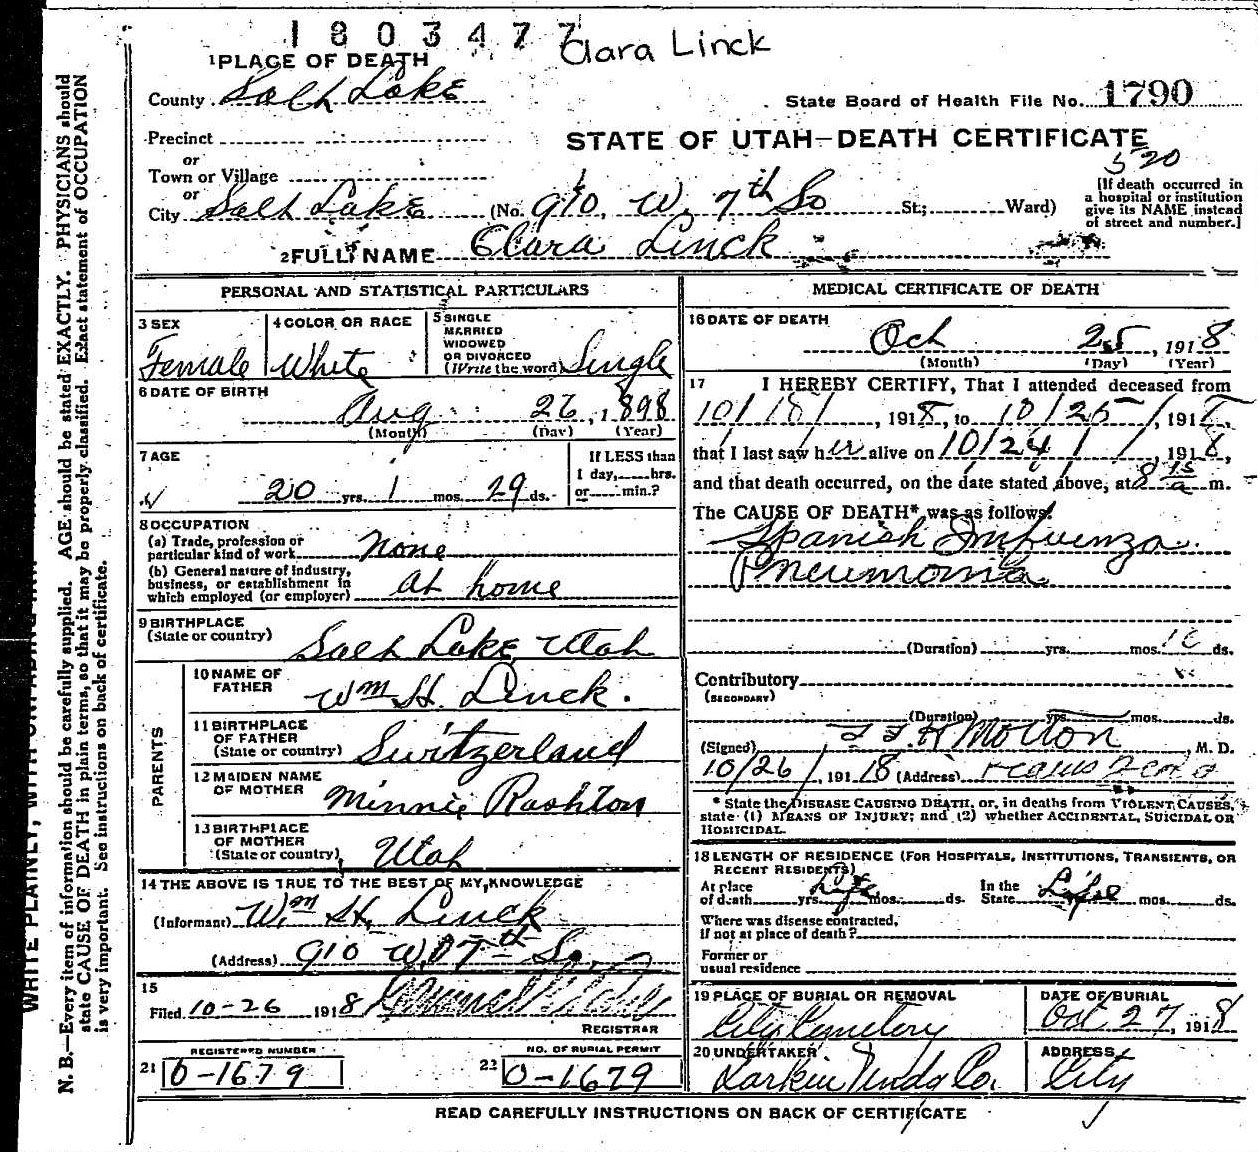 1803477
Clara Linck
1 PLACE OF DEATH
County Salt Lake
State Board of Health File No. 1790
Precinct
STATE OF UTAH—DEATH CERTIFICATE
or
520
Town or Village
or
City Salt Lake (No. 910 W. 7th So St; Ward)
[If death occurred in a hospital or institution give its NAME instead of street and number.]
2 FULL NAME Clara Linck
PERSONAL AND STATISTICAL PARTICULARS
3 SEX
Female
4 COLOR OR RACE
White
5 SINGLE MARRIED WIDOWED OR DIVORCED (Write the word) Single
6 DATE OF BIRTH
Aug 26, 1898
(Month) (Day) (Year)
7 AGE
20 yrs. 1 mos. 29 ds.
If LESS than
1 day, hrs.
or min.?
8 OCCUPATION
(a) Trade, profession or
particular kind of work None
(b) General nature of industry,
business, or establishment in
which employed (or employer) at home
9 BIRTHPLACE
(State or country)
Salt Lake Utah
PARENTS
10 NAME OF FATHER
Wm H. Linck.
11 BIRTHPLACE OF FATHER
(State or country) Switzerland
12 MAIDEN NAME OF MOTHER
Minnie Rashton
13 BIRTHPLACE OF MOTHER
(State or country) Utah
14 THE ABOVE IS TRUE TO THE BEST OF MY KNOWLEDGE
(Informant) Wm H. Linck
(Address) 910 W. 7th So.
15
Filed 10-26 1918
REGISTRAR
REGISTERED NUMBER
21 0-1679
NO. OF BURIAL PERMIT
22 0-1679
MEDICAL CERTIFICATE OF DEATH
16 DATE OF DEATH
Oct 25, 1918
(Month) (Day) (Year)
17 I HEREBY CERTIFY, That I attended deceased from
10/18/, 1918, to 10/25/, 1918,
that I last saw her alive on 10/24/, 1918,
and that death occurred, on the date stated above, at 8 15 a m.
The CAUSE OF DEATH* was as follows:
Spanish Infuenza
Pneumonia
(Duration) yrs. mos. ds.
Contributory
(SECONDARY)
(Duration) yrs. mos. ds.
(Signed) Motton, M. D.
10/26/, 1918 (Address)
* State the DISEASE CAUSING DEATH, or, in deaths from VIOLENT CAUSES,
state (1) MEANS OF INJURY; and (2) whether ACCIDENTAL, SUICIDAL OR
HOMICIDAL.
18 LENGTH OF RESIDENCE (FOR HOSPITALS, INSTITUTIONS, TRANSIENTS, OR
RECENT RESIDENTS)
At place
of death Life yrs. mos. ds.
In the
State Life mos. ds.
Where was disease contracted,
if not at place of death?
Former or
usual residence
19 PLACE OF BURIAL OR REMOVAL
City Cemetery
DATE OF BURIAL
Oct 27, 1918
20 UNDERTAKER
Larkin Undg Co.
ADDRESS
City
READ CAREFULLY INSTRUCTIONS ON BACK OF CERTIFICATE
N. B.—Every item of information should be carefully supplied. AGE should be stated EXACTLY. PHYSICIANS should
state CAUSE OF DEATH in plain terms, so that it may be properly classified. Exact statement of OCCUPATION
is very important. See instructions on back of certificate.
WRITE PLAINLY, WITH UNFADING INK